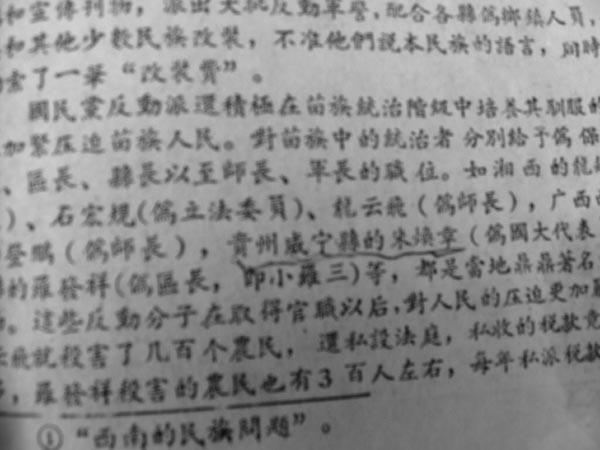 和宣傳刊物，派出大批反動軍警，配合各縣偽鄉鎮人員，
和其他少數民族改裝，不准他們說本民族的語言，同時
索了一筆“改裝費”。
國民黨反動派還積極在苗族統治階級中培养其馴服的
加緊压迫苗族人民。對苗族中的統治者分別給予偽保
、區長、縣長以至師長、軍長的職位。如湘西的龍
）、石宏規(偽立法委員)、龍云飛（偽師長），广西
登鵬（偽師長），貴州威宁縣的朱煥章（偽國大代表
的羅發祥(偽區長，即小羅三)等，都是當地鼎鼎著名
。這些反動分子在取得官職以后，對人民的压迫更加
飛就殺害了几百个農民，還私設法庭，私收的稅款竟
，羅發祥殺害的農民也有3百人左右，每年私派稅款
①“西南的民族問題”。